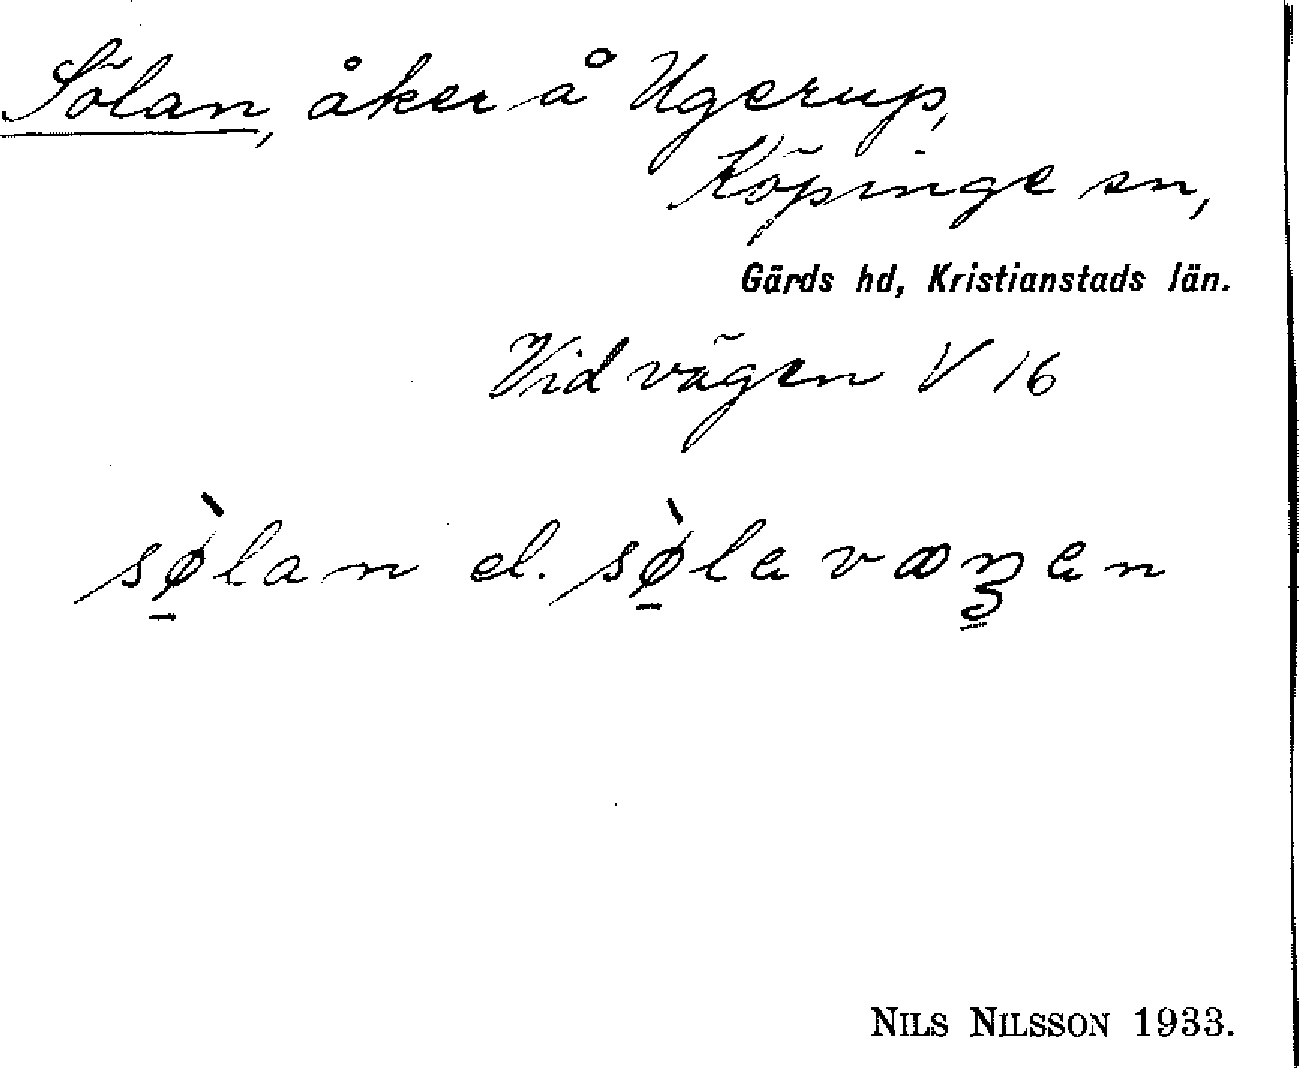 Sölan, åker å Ugerup,
Köpinge sn,
Gärds hd, Kristianstads län.
Vid vägen V 16
sø̱̀lan el. sø̱̀la væŋ̱an
NILS NILSSON 1933.